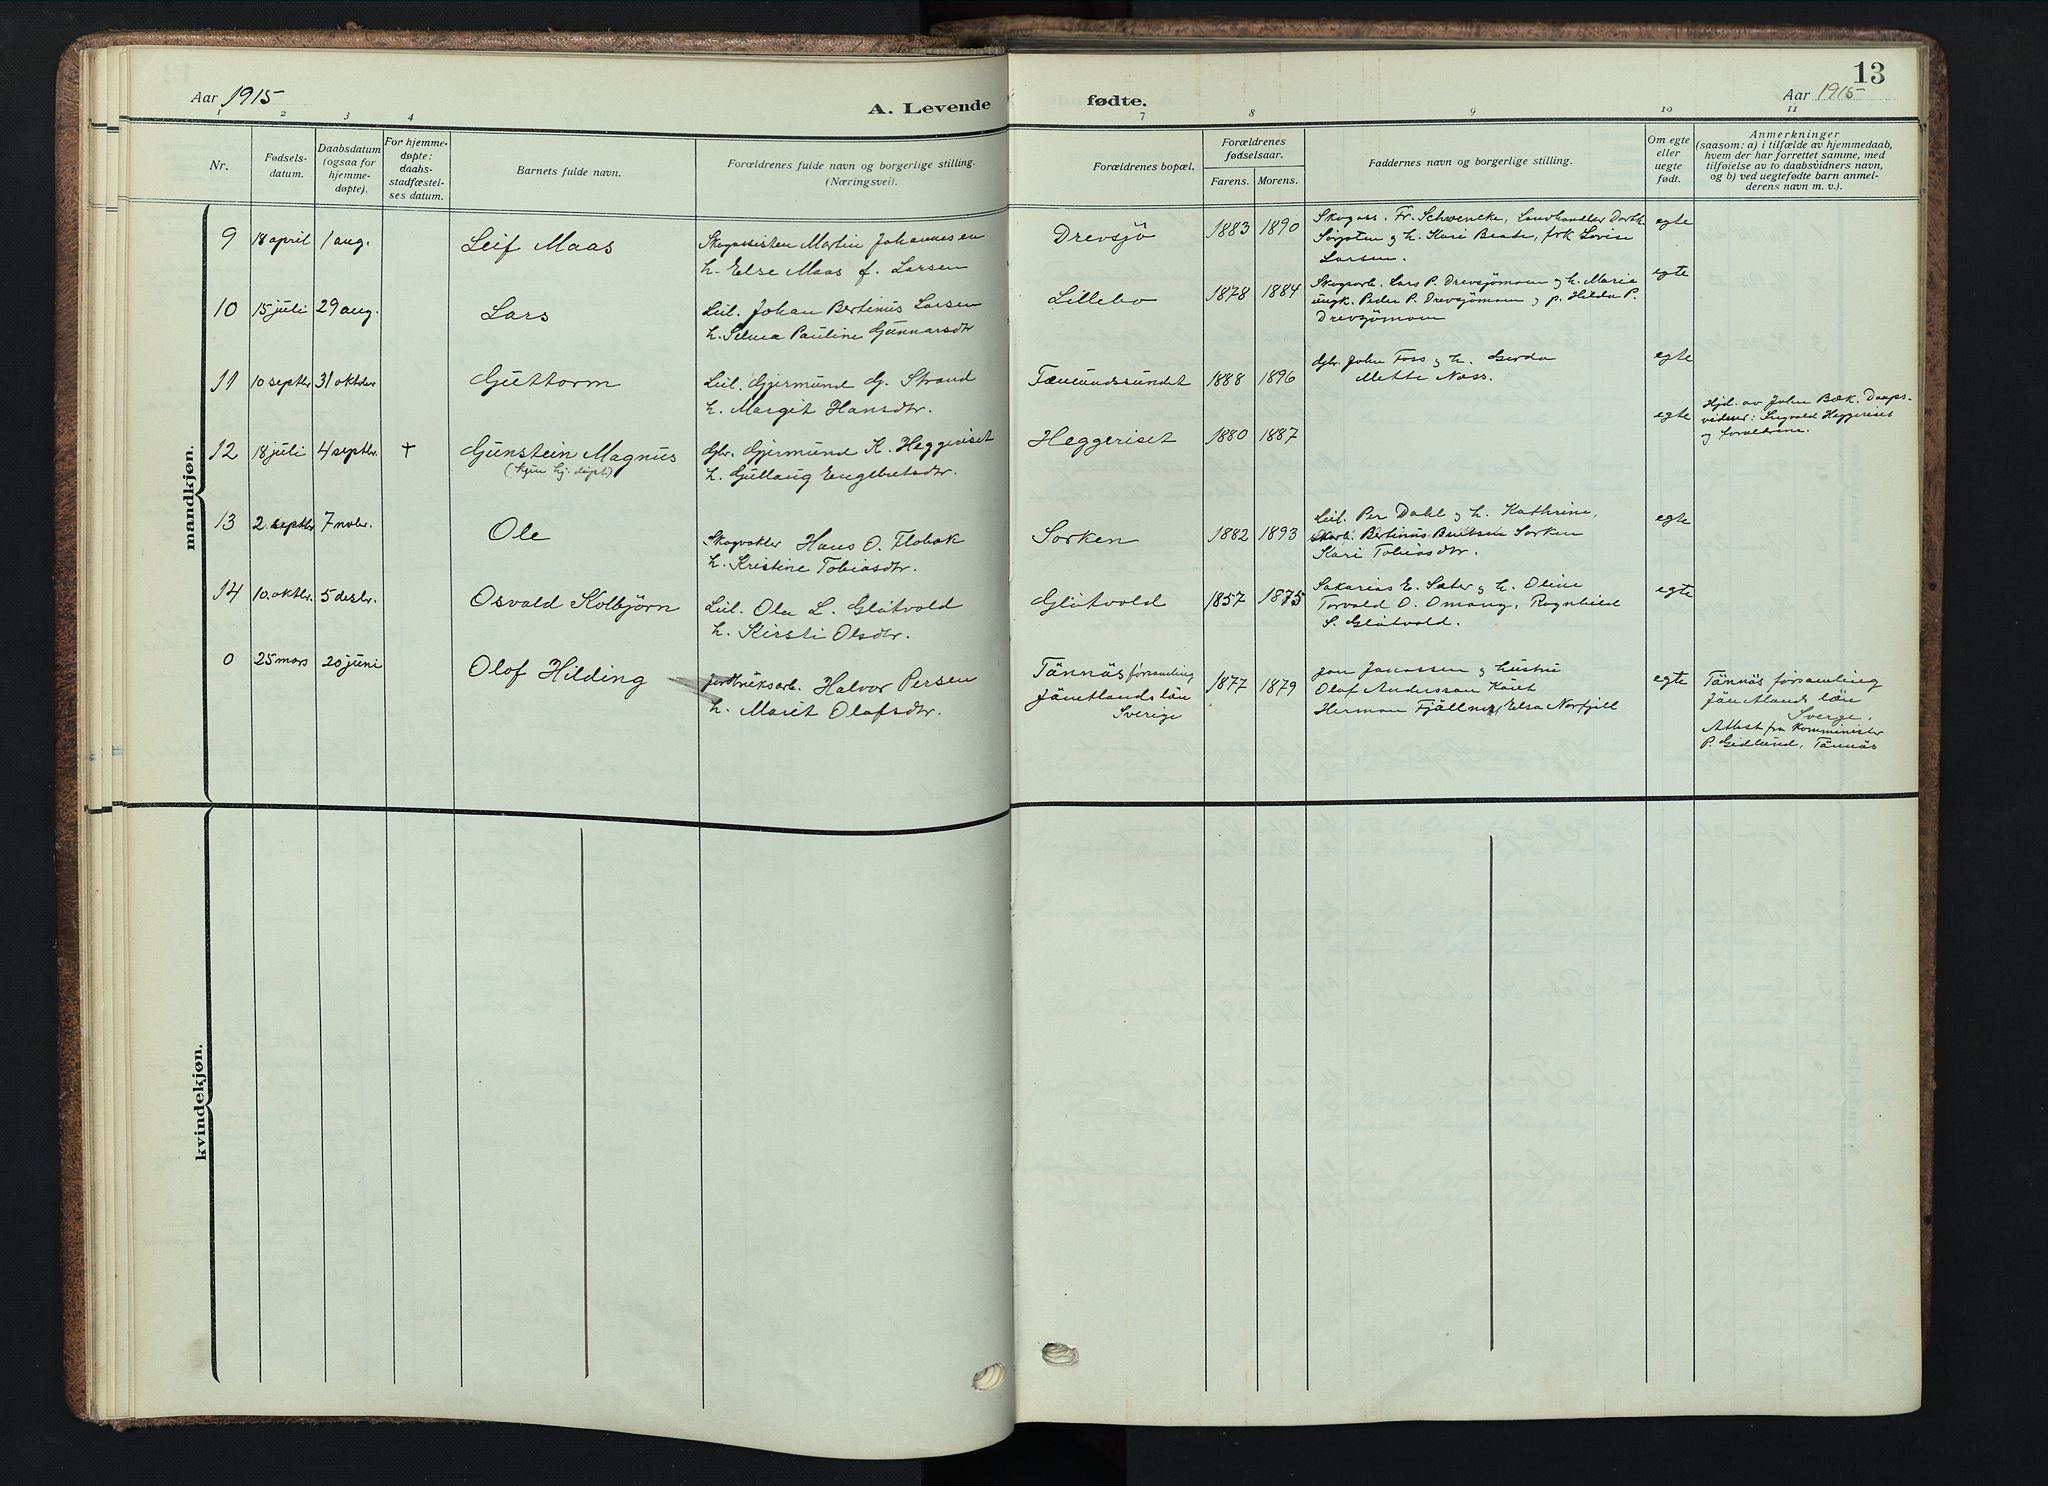 Aar 1915
A. Levende
fødte.
13
Aar 1915
1 2 3 4
7 8 9 10 11
Nr.
Fødsels-
datum.
Daabsdatum
(ogsaa for
hjemme-
døpte).
For hjemme-
døpte:
daabs-
stadfæstel-
ses datum.
Barnets fulde navn.
Forældrenes fulde navn og borgerlige stilling.
(Næringsvei).
Forældrenes bopæl.
Forældrenes
fødselsaar.
Farens. Morens.
Faddernes navn og borgerlige stilling.
Om egte
eller
uegte
født.
Anmerkninger
(saasom: a) i tilfælde av hjemmedaab,
hvem der har forrettet samme, med
tilføielse av to daabsvidners navn,
og b) ved uegtefødte barn anmel-
derens navn m. v.).
mandkjøn.
9 18 april 1 aug. Leif Maas
Skogassisten Martin Johannesen
h. Else Maas f. Larsen
Drevsjö 1883 1890
Skogass. Fr. Schwencke, Landhandler
h. Kari Beate, frk Lovise
Larsen.
egte
10 15 juli 29 aug. Lars
Leil. Johan Bertinus Larsen
h. Selma Pauline Gunnarsdtr
Lillebo 1878 1884
Skogsarb. Lars P. Drevsjömoen og h. Marie
ungk. Peder P. Drevsjömoen og p. Hilda P.
Drevsjömoen
egte
11 10 septbr 31 oktber Guttorm
Leil. Gjermund G. Strand
h. Margit Hansdtr.
Fæmundsundet 1888 1896
Gbr. John Foss og h. Gerda
Mette Næss.
egte
12 18 juli 4 septbr. + Gunstein Magnus
(kun hj. døpt)
Gbr. Gjermund K. Heggeriset
h. Gullaug Engebretsdtr.
Heggeriset 1880 1887
egte
Hjd. av John Bæk. Daaps-
vidner: Ingvald Heggeriset
og forældrene.
13 2. septbr 7 novbr. Ole
Skogvokter Hans O. Flobak
h. Kristine Tobiasdtr.
Sorken 1882 1893
Leil. Per Dahl og h. Kathrine,
Bertinus Sorken
Kari Tobiasdtr.
egte
14 10. oktbr. 5 desbr. Osvald Kolbjörn
Leil. Ole L. Glötvold
h. Kirsti Olsdtr.
Glötvold 1857 1875
Sakarias E. Sæter og h. Oline
Torvald O. Omang, Ragnhild
S. Glötvold.
egte
0 25 mars 20 juni Olof Hilding
Jordbruksarb. Halvor Persen
h. Marit Olafsdtr.
Tännäs församling
Jämtlands län
Sverige
1877 1879
Jon Jonassen og hustru
Olof Andersson
Herman Fjällner, Elsa Norfjell
egte
Tännäs församling
Jämtlands län
Sverge.
Attest fra Komminister
P. Gidlund, Tännäs
kvindekjøn.